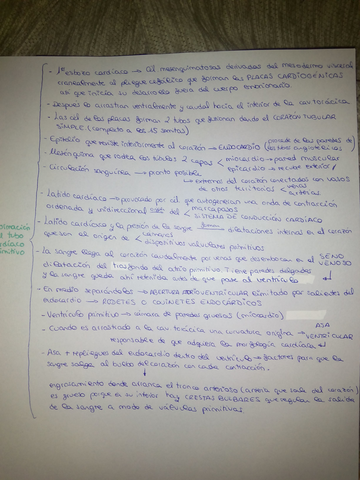 - 1er esbozo cardíaco → Cél mesenquimatosas derivadas del mesodermo visceral
cranealmente al pliegue cefálico que forman las PLACAS CARDIOGÉNICAS
así que inicia su desarrollo fuera del cuerpo embrionario.
- Después lo arrastran ventralmente y caudal hacia el interior de la cav torácica
- Las cél de las placas forman 2 tubos que fusionan dando el CORAZÓN TUBULAR
SIMPLE (completo a los
- Epitelio que reviste interiormente al corazón → ENDOCARDIO (procede de las paredes de
- Mesénquima que rodea los tubos 2 capas < miocardio → pared muscular
epicardio → recubre exterior
- Circulación sanguínea → pronto posible
↳ extremos del corazón conectados con vasos
de otros territorios < venas
arterias
- Latido cardíaco → provocado por cél que autogeneran una onda de contracción
ordenada y unidireccional < marcapasos
SISTEMA DE CONDUCCIÓN CARDÍACO
- Latido cardíaco y la presión de la sangre → dilataciones internas en el corazón
que son el origen de < cámaras
dispositivos valvulares primitivos
- La sangre llega al corazón caudalmente por venas que desembocan en el SENO
VENOSO
dilatación del trasfondo del atrio primitivo. Tiene paredes delgadas
y la sangre queda ahí retenida antes de que pase al ventrículo
- En medio separándolos → ABERTURA ATRIOVENTRICULAR limitado por salientes del
endocardio → RODETES O COJINETES ENDOCÁRDICOS
- Ventrículo primitivo → cámara de paredes gruesas (miocardio)
- Cuando es arrastrado a la cav torácica una curvatura origina → ASA
VENTRICULAR
responsable de que adquiera la morfología cardíaca
- Asa + repliegues del endocardio dentro del ventrículo → factores para que la
sangre salga al bulbo del corazón con cada contracción.
↓
engrosamiento donde arranca el tronco arterioso (arteria que sale del corazón)
es grueso porque en su interior hay CRESTAS BULBARES que regulan la salida
de la sangre a modo de válvulas primitivas